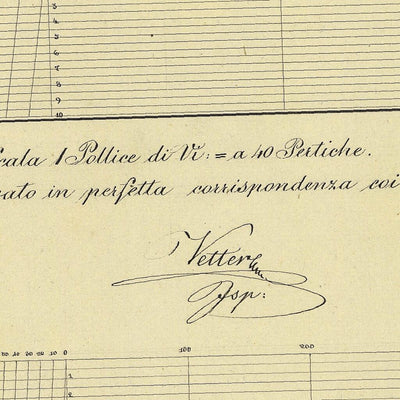 3
4
5
6
7
8
9
10
cala 1 Pollice di Vi: = a 40 Pertiche.
ato in perfetta corrispondenza coi
Vetter
Isp:
50 40 30 20 10 0 100 200
1
2